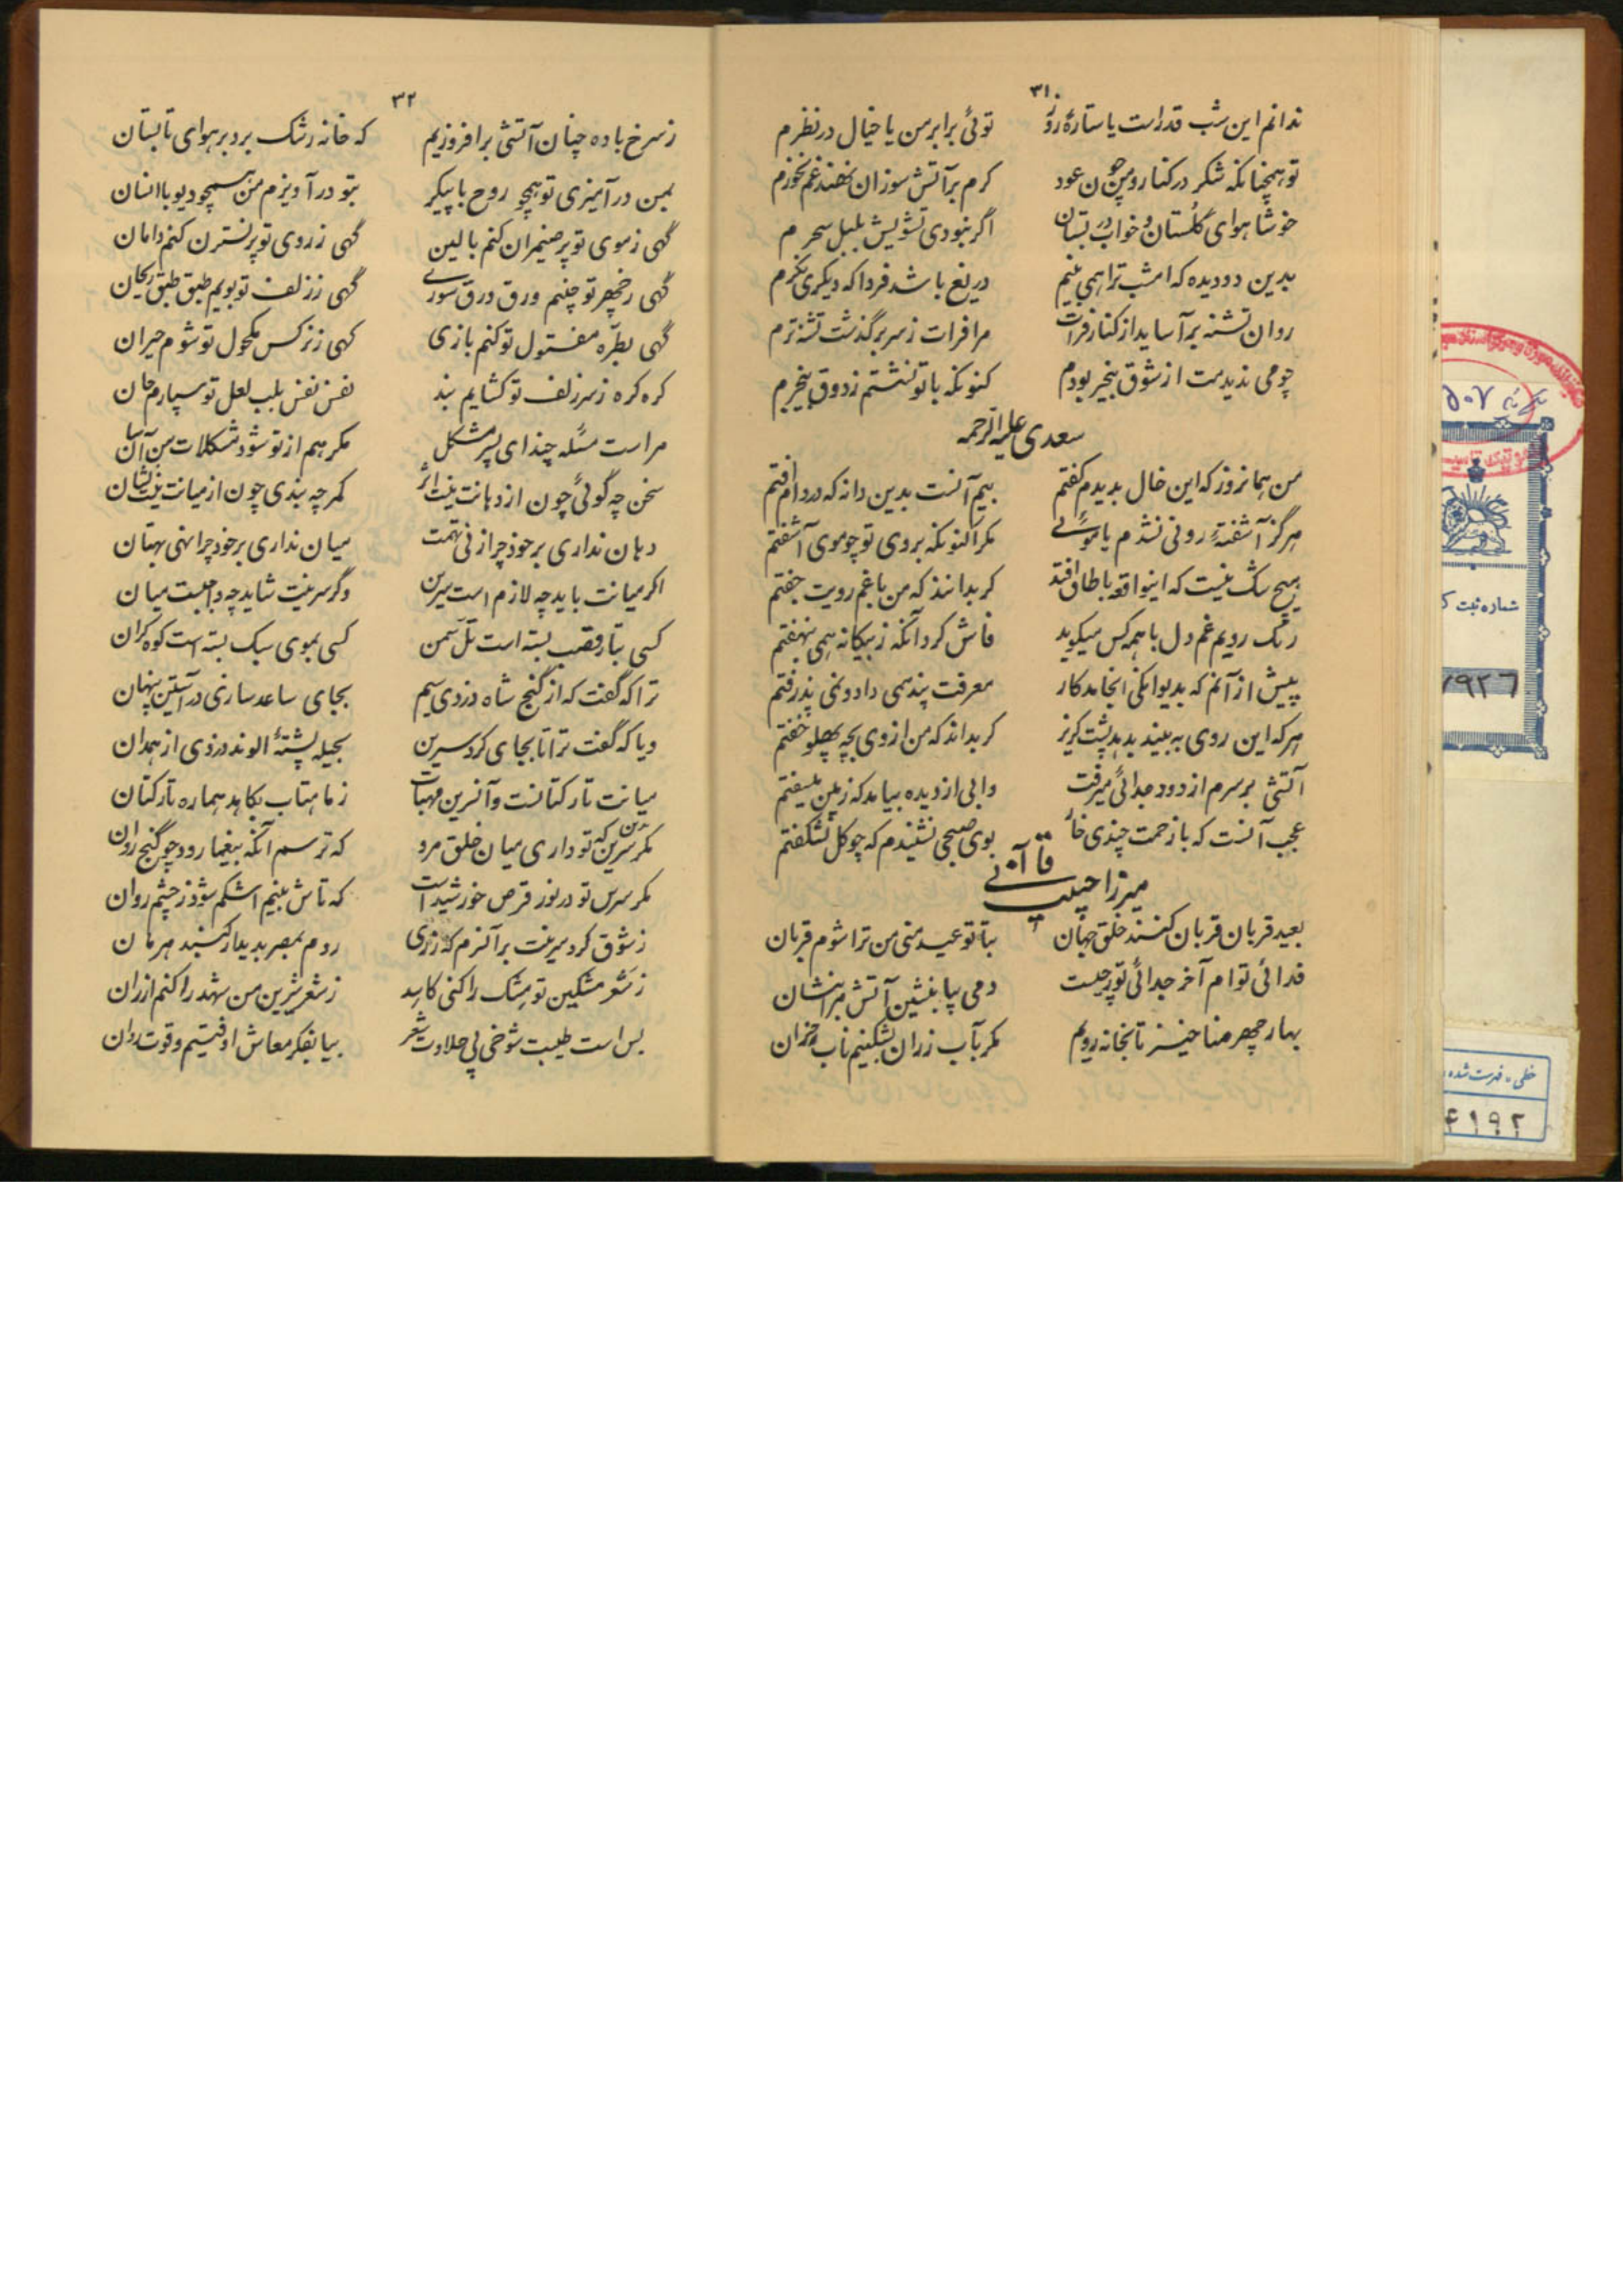 ۳۱
ندانم این شب قدر است یا ستارهٔ روز توئی برابر من یا خیال در نظرم
تو همچنانکه شکر در کنار و من چون عود گرم بر آتش سوزان نهند غم نخورم
خوشا هوای گلستان و خواب در بستان اگر نبودی تشویش بلبل سحرم
بدین دو دیده که امشب ترا همی بینم دریغ باشد فردا که دیگری نگرم
روان تشنه برآساید از کنار فرات مرا فرات ز سر برگذشت تشنه ترم
چو می ندیدمت از شوق بیخبر بودم کنونکه با تو نشستم ز ذوق بیخبرم
سعدی علیه الرحمه
من همانروز که این خال بدیدم گفتم بیم آنست بدین دانه که در دام افتم
هرگز آشفتهٔ روئی نشدم یا موئی مگر اکنونکه بروی تو چو موی آشفتم
هیچ شک نیست که اینواقعه با طاق افتد گر بدانند که من با غم رویت جفتم
رنگ رویم غم دل با همه کس میگوید فاش کرد آنکه ز بیگانه همی بنهفتم
پیش از آنم که بدیوانگی انجامد کار معرفت پند همی داد و نمی پذرفتم
هرکه این روی به بیند بدهد پشت گریز گر بداند که من از وی بچه پهلو خفتم
آتشی بر سرم از دود جدائی میرفت وابی از دیده بیامد که زمین میسفتم
عجب آنست که با زحمت چندی خار بوی صبحی نشنیدم که چو گل نشکفتم
میرزا حبیب قاآنی
بعید قربان قربان کنند خلق جهان بتا تو عید منی من ترا شوم قربان
فدائی توام آخر جدائی تو ز چیست دمی بیا بنشین آتش مرا بنشان
بهار چهر منا خیز تا بخانه رویم مگر بآب رزان بشکنیم تاب خزان
۳۲
ز سرخ باده چنان آتشی برافروزیم که خانه رشک برد بر هوای تابستان
بمن درآمیزی تو همچو روح با پیکر بتو درآویزم من همچو دیو با انسان
گهی ز موی تو پر ضیمران کنم بالین گهی ز روی تو پر نسترن کنم دامان
گهی ز چهر تو چینم ورق ورق سوری گهی ز زلف تو بویم طبق طبق ریحان
گهی بطرهٔ مفتول تو کنم بازی گهی ز نرگس مکحول تو شوم حیران
گره گره ز سر زلف تو گشایم بند نفس نفس بلب لعل تو سپارم جان
مراست مسئله چند ای پسر مشکل مگر هم از تو شود مشکلات من آسان
سخن چه گوئی چون از دهانت نیست اثر کمر چه بندی چون از میانت نیست نشان
دهان نداری بر خود چرا زنی تهمت میان نداری بر خود چرا نهی بهتان
اگر میانت باید چه لازم است سرین وگر سرینت شاید چه واجبست میان
کسی بتار قصب بسته است تل سمن کسی بموی سبک بسته است کوه گران
ترا که گفت که از گنج شاه دزدی سیم بجای ساعد سازی در آستین پنهان
ویا که گفت ترا تا بجای گرد سرین بحیله پشتهٔ الوند دزدی از همدان
میانت تار کتانست وآن سرین مهتاب ز ماهتاب بکاهد هماره تار کتان
بدین سرین که تو داری میان خلق مرو که ترسم آنکه بیغما رود چو گنج روان
مگر سرین تو در نور قرص خورشید است که تاش بینم اشکم شود ز چشم روان
ز شوق گرد سرینت بر آن سرم که ز ری روم بمصر بدیدار گنبد هرمان
ز شعر مشکین تو مشک را کنی کاسد ز شعر شیرین من شهد را کنم ارزان
بس است طیبت شوخی بی حلاوت شعر بیا بفکر معاش اوفتیم و قوت روان
۵۰۷
شماره ثبت
۹۲۶
خطی - فهرست شده
۴۱۹۲